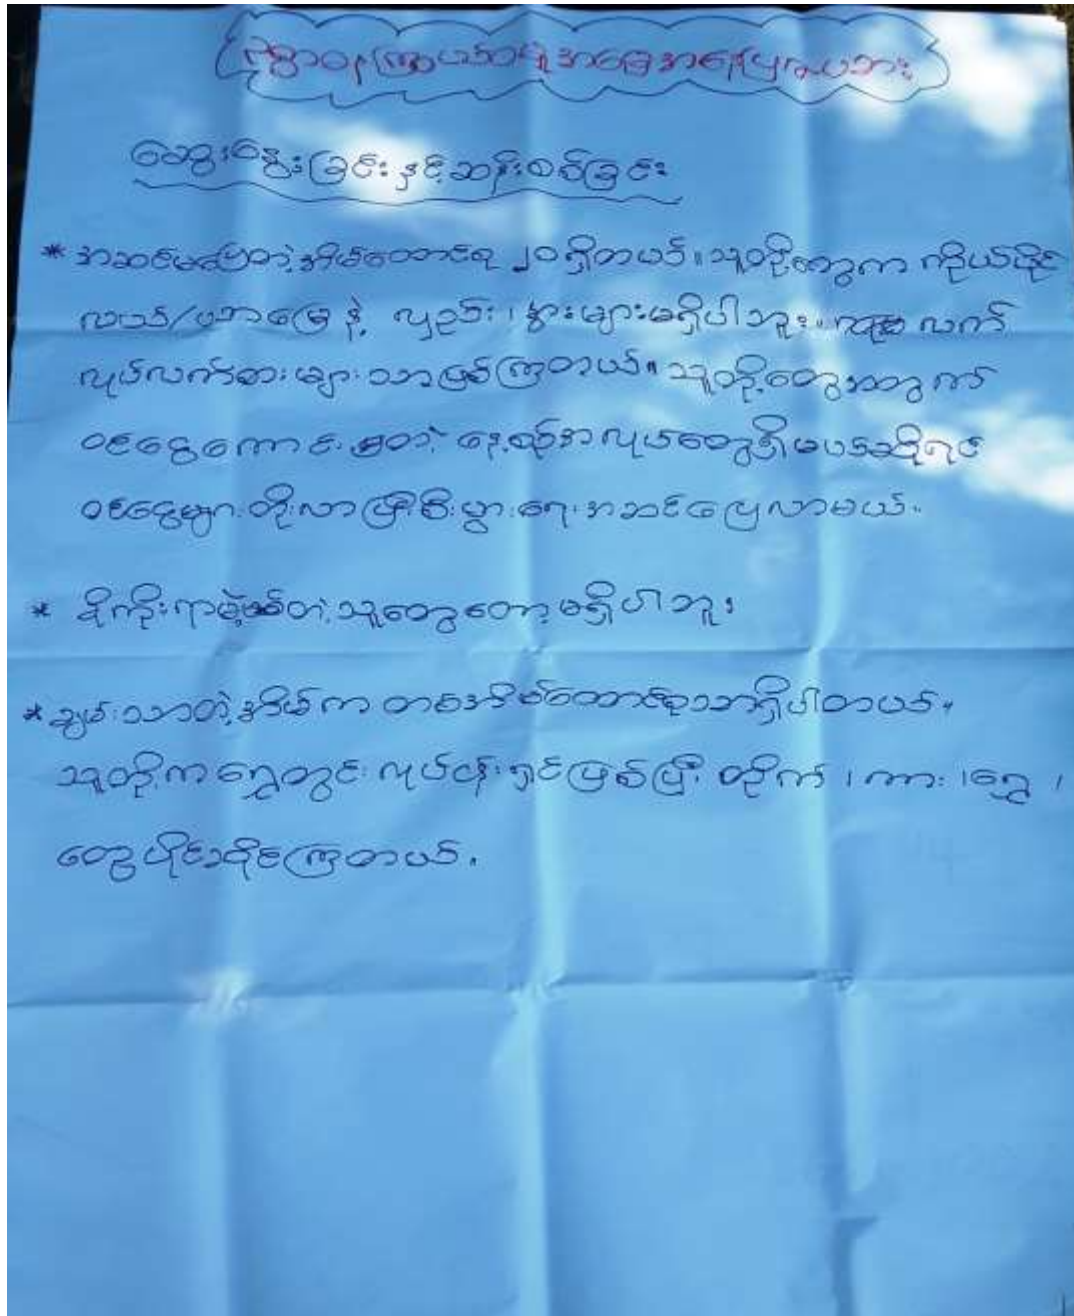 ဥစ္စာဓနကြွယ်ဝမှုအခြေအနေပြကားပုံ
ဆွေးနွေးခြင်းနှင့်ဆန်းစစ်ခြင်း
* အဆင်မပြေတဲ့အိမ်ထောင်စု ၂၀ ရှိတယ်။ သူတို့တွေက ကိုယ်ပိုင်
လယ်/ယာမြေနဲ့ လှည်း၊ နွားများမရှိပါဘူး။ လက်
လုပ်လက်စားများသာဖြစ်ကြတယ်။ သူတို့တွေအတွက်
ဝင်ငွေကောင်းမှုတဲ့ နေ့စဉ်အလုပ်တွေရှိမယ်ဆိုရင်
ဝင်ငွေများတိုးလာပြီးစီးပွားရေးအဆင်ပြေလာမယ်။
* ခိုကိုးရာမဲ့တဲ့သူတွေတော့မရှိပါဘူး။
* ချမ်းသာတဲ့အိမ်က တစ်အိမ်ထောင်စုသာရှိပါတယ်။
သူတို့ကရွှေတွင်းလုပ်ငန်းရှင်ဖြစ်ပြီး တိုက်၊ ကား၊ ရွှေ၊
တွေပိုင်ဆိုင်ကြတယ်။